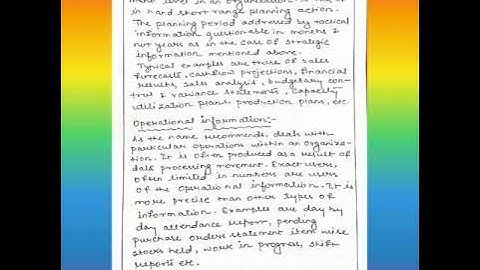 ment level in an organization
in hand short range planning action.
The planning period addressed by tactical
information questionable in months &
not years as in the case of strategic
information mentioned above.
Typical examples are those of sales
forecasts, cashflow projections, financial
results, sales analysis, budgetary con-
trol & variance statements, capacity
utilization plans production plans, etc.
Operational information:-
As the name recommends, deals with
particular operations within an organiza-
tion. It is often produced as a result of
data processing movement. Exact users,
often limited in numbers are users
of the operational information. It is
more precise than other types of
information. Examples are day by
day attendance reform, pending
purchase orders statement item wise
stocks held, work in progress, shift
reports etc.